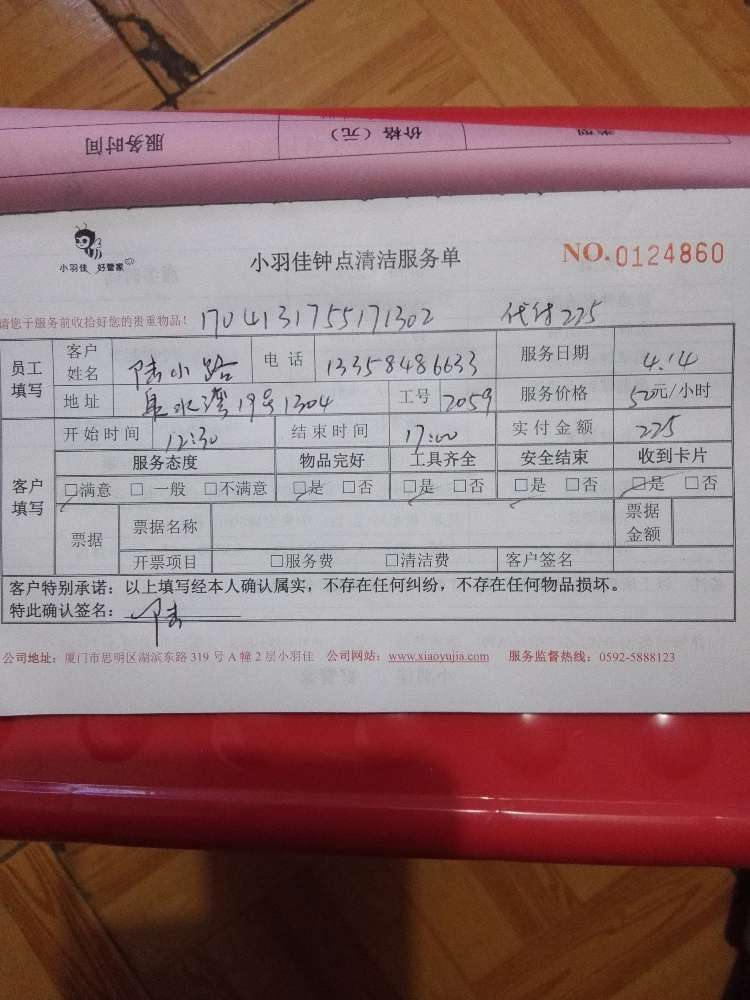 服务时间 价格（元） 类型
小羽佳 好管家
小羽佳钟点清洁服务单 NO.0124860
请您于服务前收拾好您的贵重物品！ 1704131755171302 代付225
员工填写 客户姓名 陆小路 电话 13358486633 服务日期 4.14
地址 泉水湾19号1304 工号 2059 服务价格 50元/小时
客户填写 开始时间 12:30 结束时间 17:00 实付金额 225
服务态度 物品完好 工具齐全 安全结束 收到卡片
□满意 □一般 □不满意 □是 □否 □是 □否 □是 □否 □是 □否
票据 票据名称 票据金额
开票项目 □服务费 □清洁费 客户签名
客户特别承诺：以上填写经本人确认属实，不存在任何纠纷，不存在任何物品损坏。
特此确认签名： 陆
公司地址：厦门市思明区湖滨东路319号A幢2层小羽佳 公司网站：www.xiaoyujia.com 服务监督热线：0592-5888123